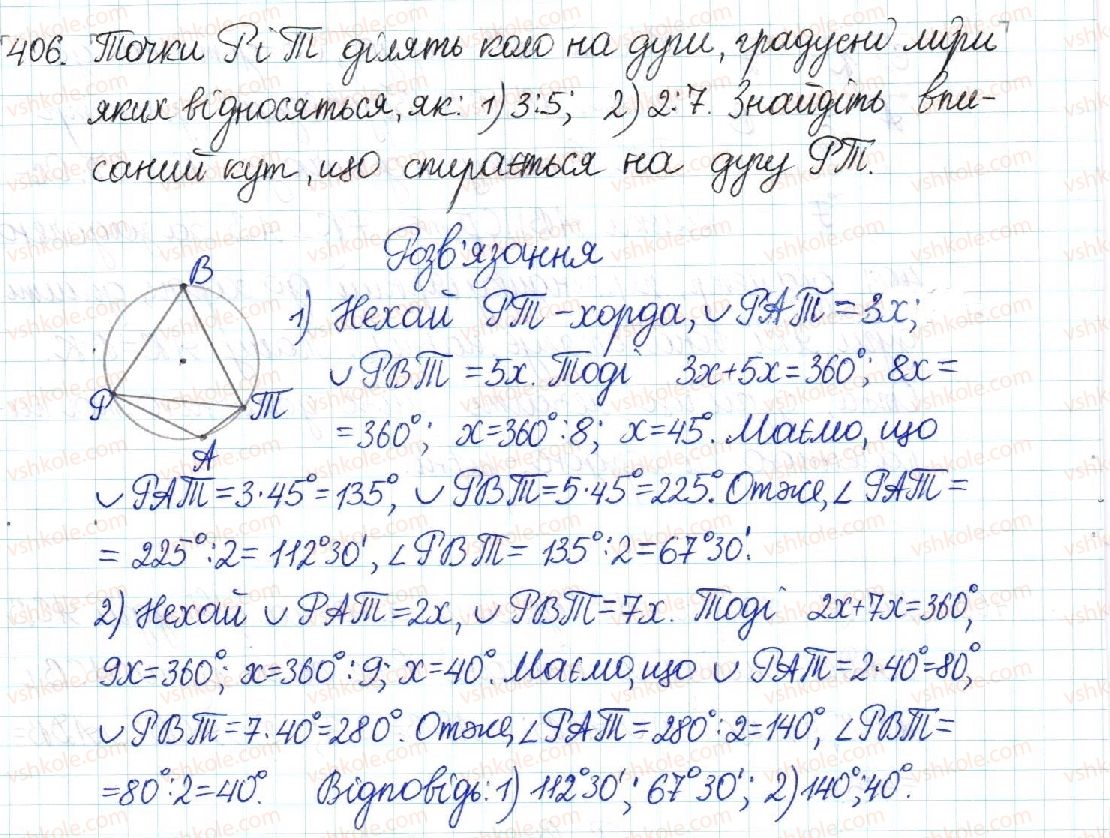 406. Точки P і T ділять коло на дуги, градусні міри
яких відносяться, як: 1) 3:5; 2) 2:7. Знайдіть впи-
саний кут, що спирається на дугу PT.
Розв'язання
B
P
T
A
1) Нехай PT - хорда, ∪ PAT = 3x;
∪ PBT = 5x. Тоді 3x+5x=360°; 8x=
=360°; x=360°:8; x=45°. Маємо, що
∪ PAT=3·45°=135°, ∪ PBT=5·45°=225°. Отже, ∠ PAT=
= 225°:2= 112°30', ∠ PBT= 135°:2=67°30'.
2) Нехай ∪ PAT=2x, ∪ PBT=7x. Тоді 2x+7x=360°,
9x=360°; x=360°:9; x=40°. Маємо, що ∪ PAT=2·40°=80°,
∪ PBT=7·40°=280°. Отже, ∠ PAT=280°:2=140°, ∠ PBT=
=80°:2=40°. Відповідь: 1) 112°30'; 67°30'; 2) 140°; 40°.
vshkole.com